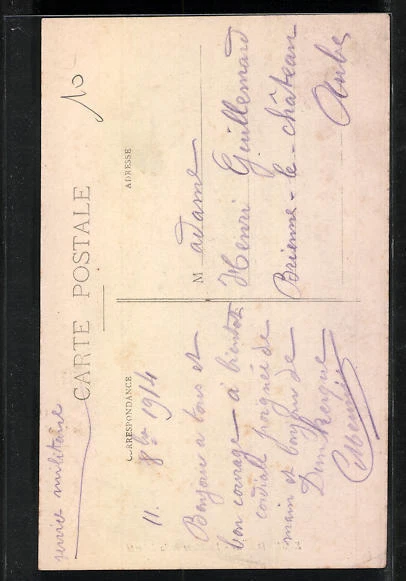 service militaire
10
CARTE POSTALE
CORRESPONDANCE
ADRESSE
11. 8bre 1914
Bonjour a tous et
bon courage – à bientôt
cordiale poignée de
main et bonjour de
Dunkerque
M adame
Henri Guillemard
Brienne-le-château
Aube